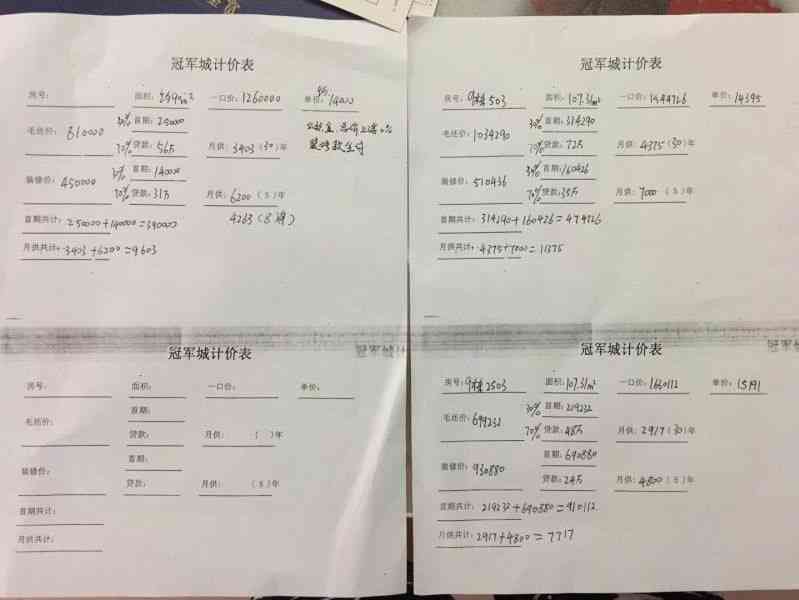 冠军城计价表
房号: 面积: 一口价: 1260000 单价: 14000
毛坯价: 810000 30% 首期: 250000
70% 贷款: 56万 月供: 3403 (30) 年
装修价: 450000 30% 首期: 140000
70% 贷款: 31万 月供: 6200 (5) 年
4263 (8年)
首期共计: 250000+140000=390000
月供共计: 3403+6200=9603
冠军城计价表
房号: 面积: 一口价: 单价:
毛坯价: 首期:
贷款: 月供: ( ) 年
装修价: 首期:
贷款: 月供: (5) 年
首期共计:
月供共计:
冠军城计价表
房号: 9栋503 面积: 107.31m² 一口价: 1544726 单价: 14395
毛坯价: 1034290 30% 首期: 314290
70% 贷款: 72万 月供: 4375 (30) 年
装修价: 510436 30% 首期: 160426
70% 贷款: 35万 月供: 7000 (5) 年
首期共计: 314290+160426=474726
月供共计: 4375+7000=11375
冠军城计价表
房号: 9栋2503 面积: 107.31m² 一口价: 1630112 单价: 15191
毛坯价: 699232 30% 首期: 219232
70% 贷款: 48万 月供: 2917 (30) 年
装修价: 930880 首期: 690880
贷款: 24万 月供: 4800 (5) 年
首期共计: 219232+690880=910112
月供共计: 2917+4800=7717